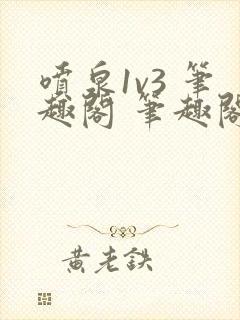 噴泉1v3 筆
趣閣 筆趣閣
黃老鉄